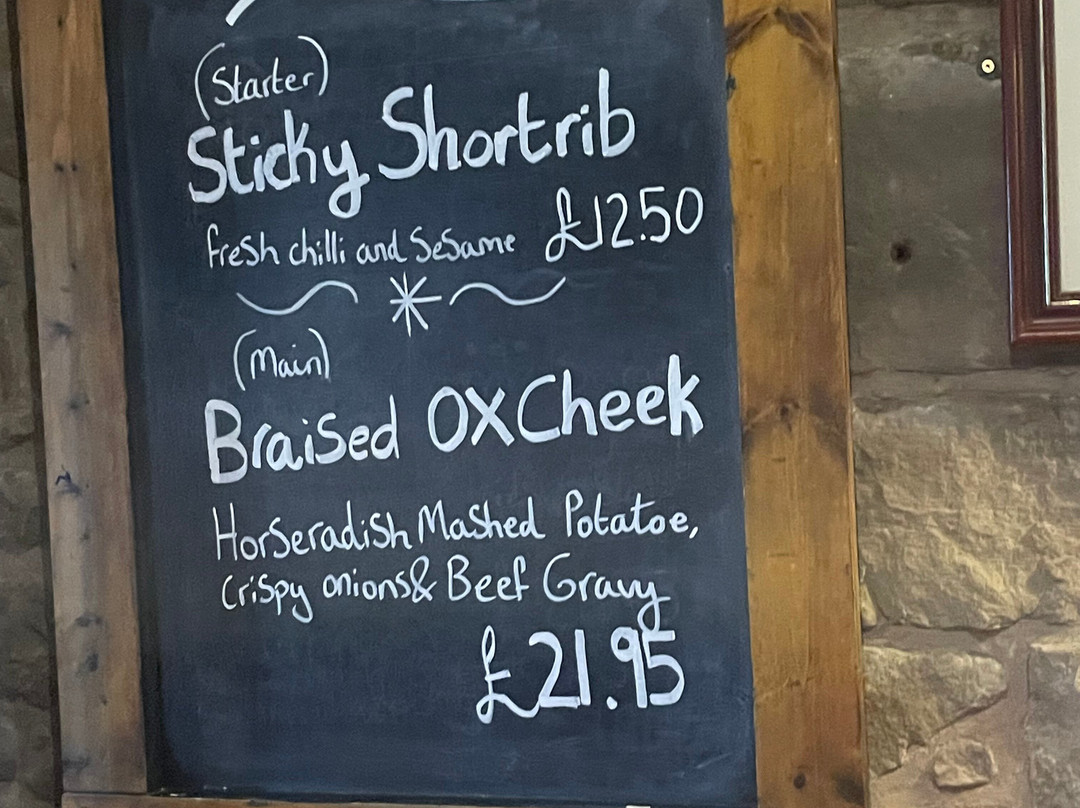 (Starter)
Sticky Shortrib
fresh chilli and Sesame £12.50
(Main)
Braised OX Cheek
Horseradish Mashed Potatoe,
Crispy onions & Beef Gravy
£21.95